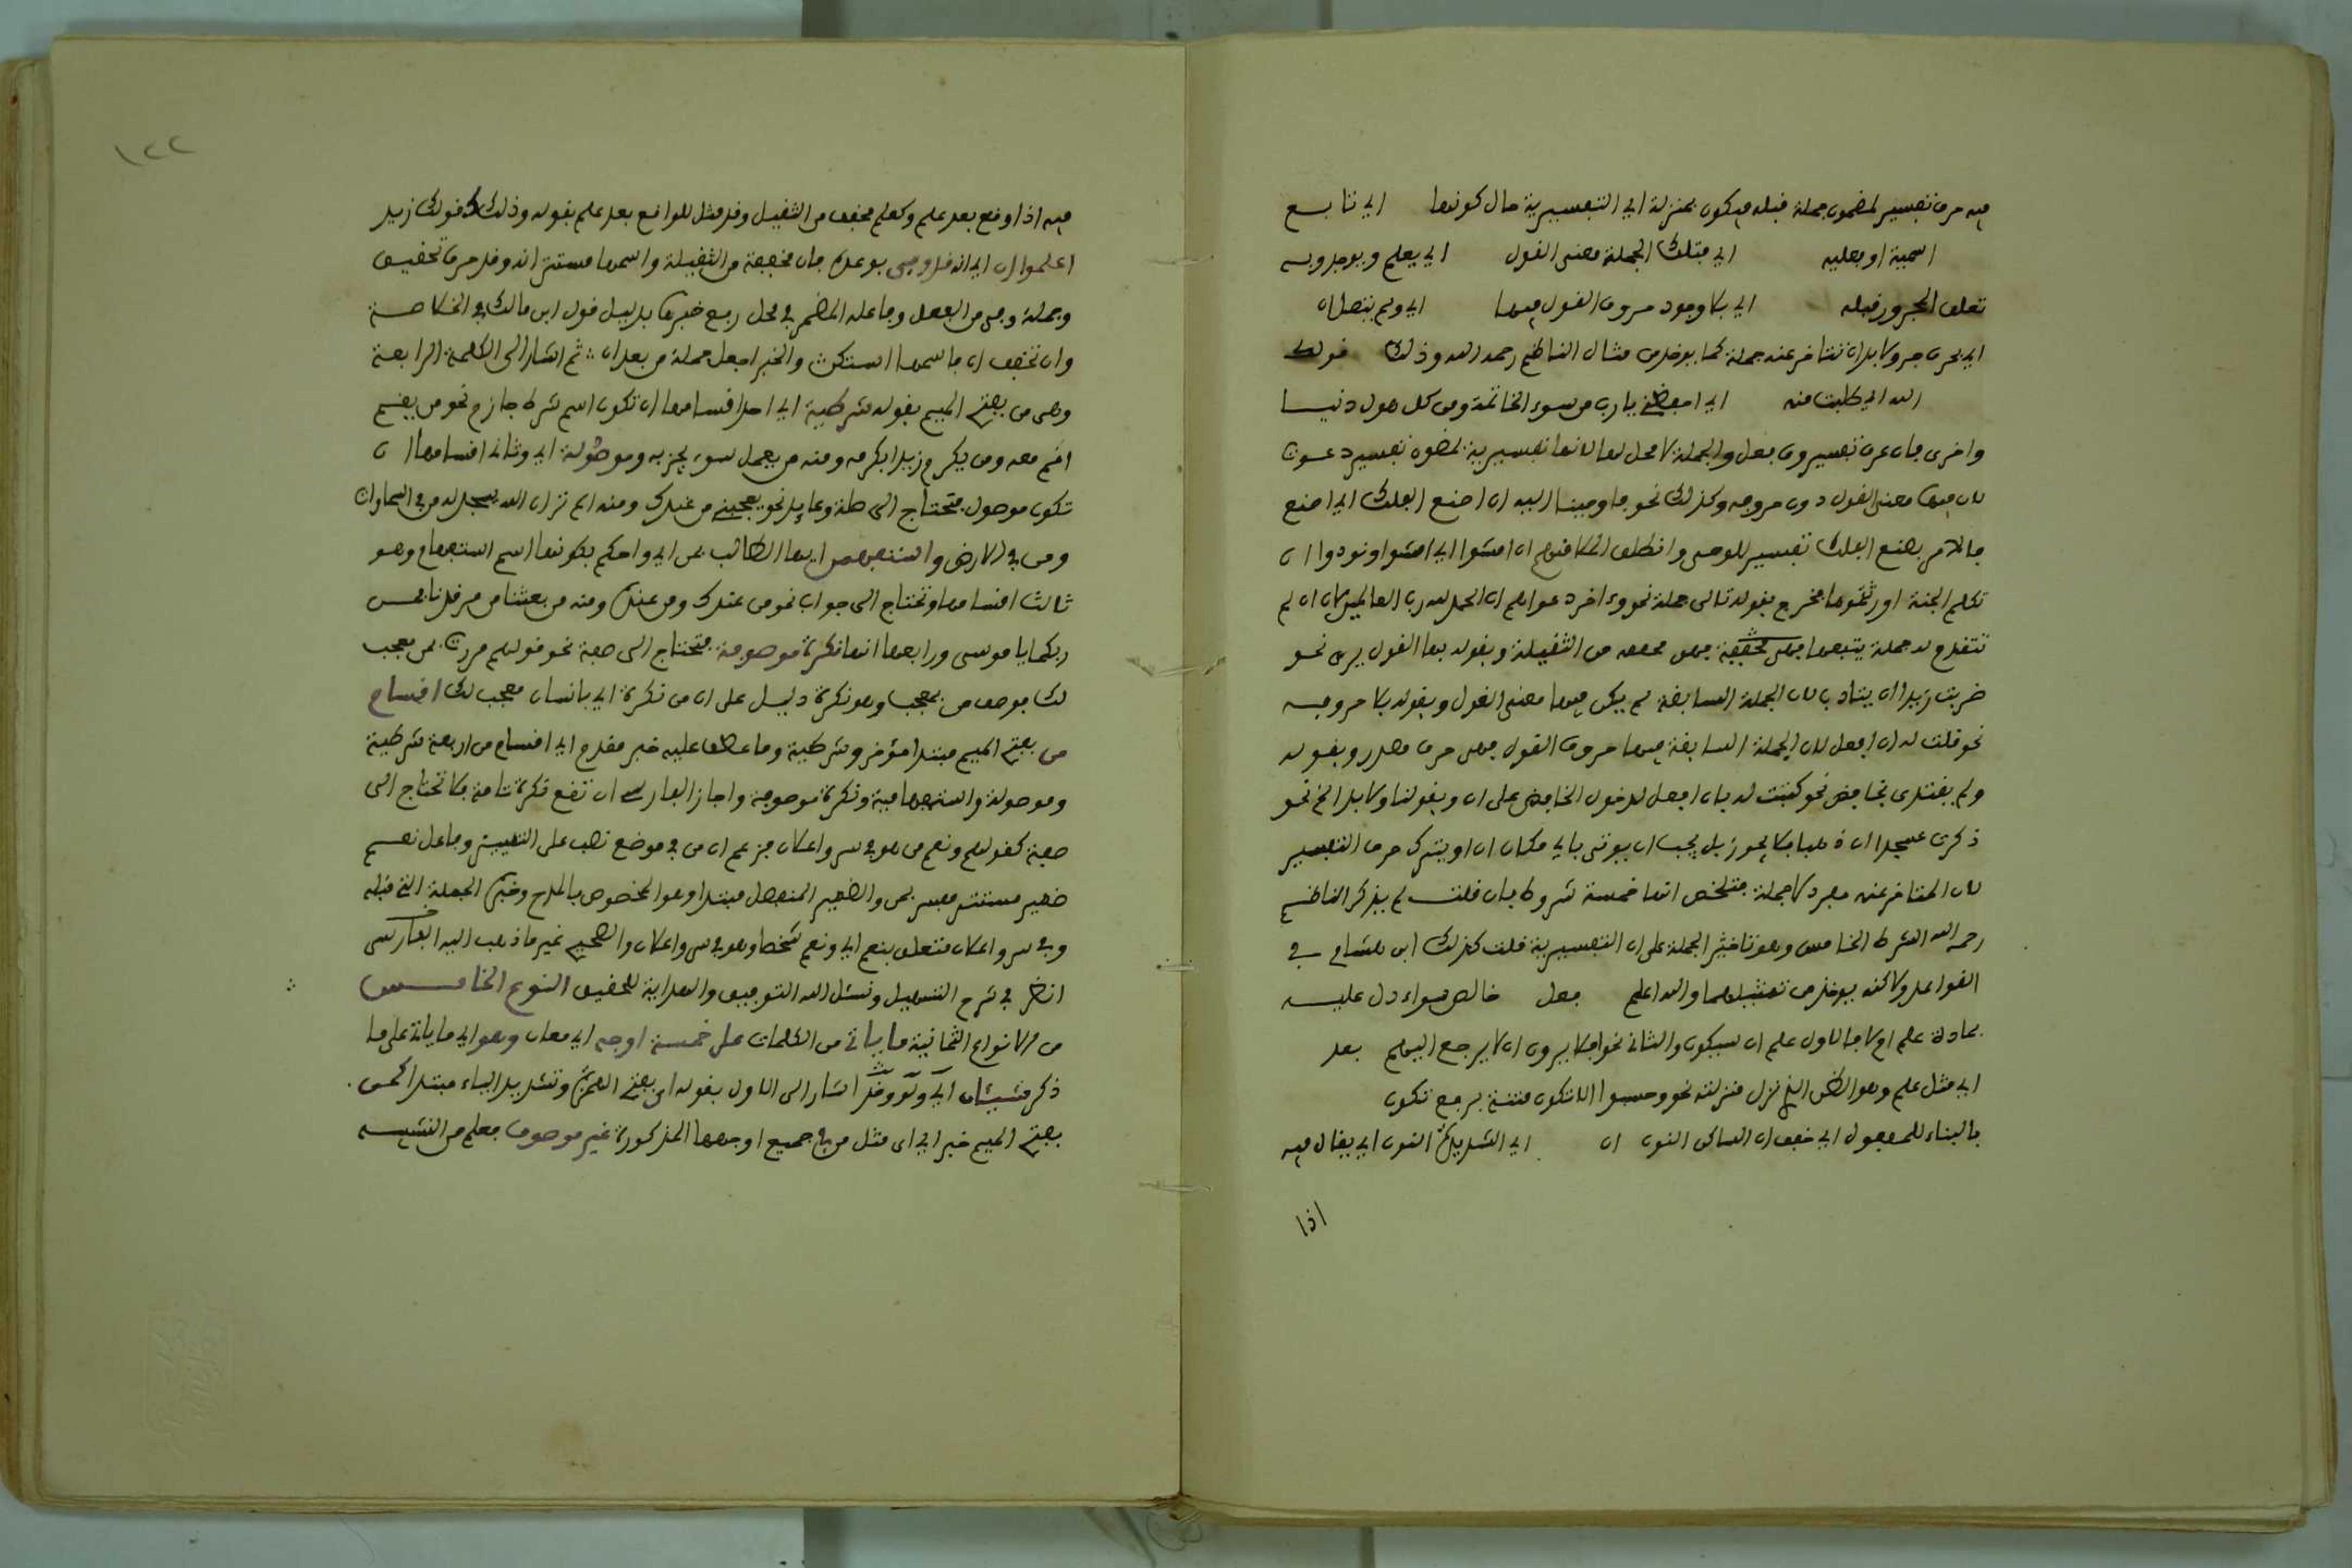 فيه حرف تفسير لمضمون جملة قبله فيكون بمنزلة اي التفسيرية حال كونها اي تابع
اسمية او فعليه اي بتلك الجملة معنى القول اي يعلم ويوجد وبه
تعلق المجرور قبله اي بلا وجود حروف القول فيها اي ولم يتصلان
اي بحرف جر ولا بد ان تتاخر عنه جملة كما يوخذ من مثال الناظم رحمه الله وذلك قولك
الله اي طلبت منه اي احفظني يا رب من سوء الخاتمة ومن كل هول دنيا
واخرى فان حرف تفسير وق فعل والجملة لا محل لها لانها تفسيرية لمضمون تفسير دعوت
لان فيها معنى القول دون حروفه وكذلك نحو فاوحينا اليه ان اصنع الفلك اي اصنع
فالامر بصنع الفلك تفسير للوحي وانطلق الملا منهم ان امشوا اي امشوا ونودوا ان
تلكم الجنة اورثتموها فخرج بقوله تالي جملة نحو واخر دعواهم ان الحمد لله رب العالمين لان ان لم
تتقدم له جملة يتبعها فهي مخففة من الثقيلة وبقوله بها القول يرى نحو
ضربت زيدا ان يتادب لان الجملة السابقة لم يكن فيها معنى القول وبقوله بلا حروفه
نحو قلت له ان افعل لان الجملة السابقة فيها حروف القول فهي حرف مصدر وبقوله
ولم يقترن بخافض نحو كتبت له بان افعل لدخول الخافض على ان وبقولنا ولا بد الخ نحو
ذكرت عسجدا ان ذهبا فلا يجوز بل يجب ان يوتى باي مكان ان او يترك حرف التفسير
لان المتاخر عنه مفرد لا جملة فتلخص انها خمسة شروط فان قلت لم يذكر الناظم
رحمه الله الشرط الخامس وهو تاخير الجملة على ان التفسيرية قلت كذلك ابن هشام في
القواعد ولاكنه يوخذ من تمثيلهما والله اعلم فعل خالص سواء دل عليه
بمادة علم او لا فالاول علم ان سيكون والثاني نحو افلا يرون ان لا يرجع اليهم بعد
اي مثل علم وهو الظن الذي نزل منزلته نحو وحسبوا الا تكون فتنة برفع تكون
بالبناء للمفعول اي خفف ان الساكن النون ان اي الشديدة النون اي يقال فيه
اذا
١٢٢
فيه اذا وقع بعد علم وكعلم مخفف من الثقيل وقد مثل للواقع بعد علم بقوله وذلك كقولك زيد
اعلموا ان اي انه قد وفى بوعده فان مخففة من الثقيلة واسمها مستتر انه وقد حرف تحقيق
وجملة وفى من الفعل وفاعله المضمر في محل رفع خبرها بدليل قول ابن مالك في الخلاصة
وان تخفف ان فاسمها استكن والخبر اجعل جملة من بعد ان ثم اشار الى الكلمة الرابعة
وهي من بفتح الميم بقوله شرطية اي احد اقسامها ان تكون اسم شرط جازم نحو من يقم
اقم معه ومن يكرم زيدا اكرمه ومنه من يعمل سوء يجز به وموصولة اي وثاني اقسامها ان
تكون موصولا فتحتاج الى صلة وعايد نحو يعجبني من عندك ومنه الم تر ان الله يسجد له من في السماوات
ومن في الارض واستفهمن ايها الطالب بمن اي واحكم بكونها اسم استفهام وهو
ثالث اقسامها وتحتاج الى جواب نحو من عندك ومن عنده ومنه من بعثنا من مرقدنا فمن
ربكما يا موسى ورابعها انها نكرة موصوفة فتحتاج الى صفة نحو قولهم مررت بمن معجب
لك فوصف من بمعجب وهو نكرة دليل على ان من نكرة اي بانسان معجب لك اقسام
من بفتح الميم مبتدا مؤخر وشرطية وما عطف عليه خبر مقدم اي اقسام من اربعة شرطية
وموصولة واستفهامية ونكرة موصوفة واجاز الفارسي ان تقع نكرة تامة فلا تحتاج الى
صفة كقولهم ونعم من هو في سر واعلان فزعم ان من في موضع نصب على التمييز وفاعل نعم
ضمير مستتر مفسر بمن والضمير المنفصل مبتدا وهو المخصوص بالمدح وخبره الجملة التي قبله
وفي سر واعلان متعلق بنعم اي ونعم شخصا وهو في سر واعلان والصحيح غير ما ذهب اليه الفارسي
انظر في شرح التسهيل ونسئل الله التوفيق والهداية للتحقيق النوع الخامس
من الانواع الثمانية ما ياتي من الكلمات على خمسة اوجه اي معان وهو اي ما ياتي على ما
ذكر شيئان اي ولو وقد اشار الى الاول بقوله اي بفتح الهمزة وتشديد الياء مبتدا كمن
بفتح الميم خبر اي اى مثل من في جميع اوجهها المذكورة غير موصوف فعلم من التشبيه